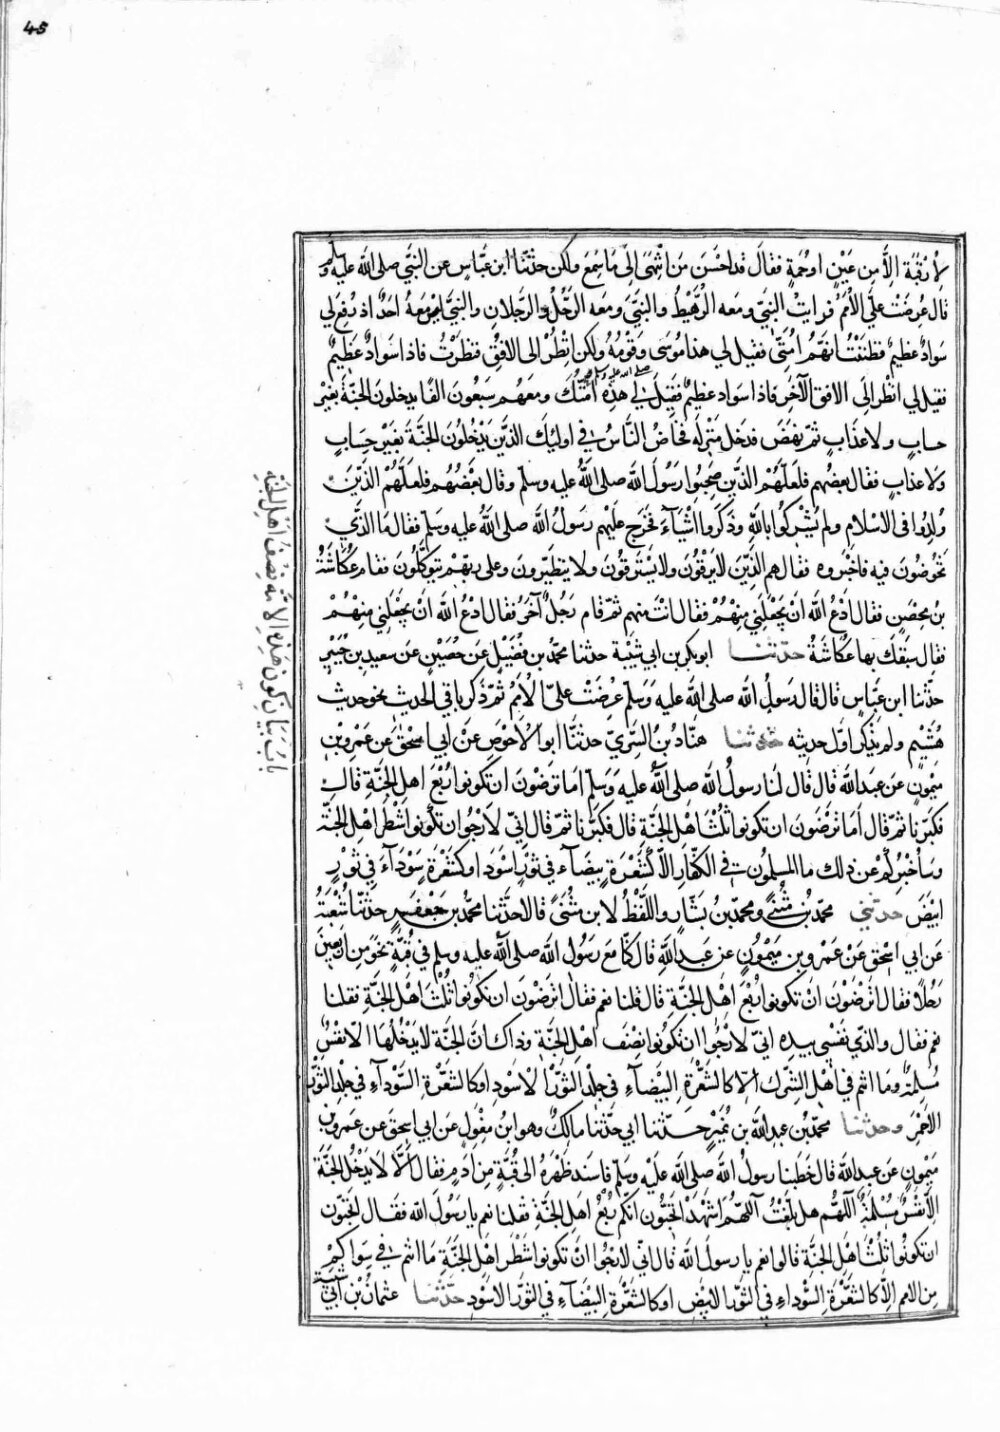 45
لا رقية الا من عين او حمة فقال قد احسن من انتهى الى ما سمع ولكن حدثنا ابن عباس عن النبي صلى الله عليه وسلم
قال عرضت علي الامم فرايت النبي ومعه الرهيط والنبي ومعه الرجل والرجلان والنبي ليس معه احد اذ رفع لي
سواد عظيم فظننت انهم امتي فقيل لي هذا موسى وقومه ولكن انظر الى الافق فنظرت فاذا سواد عظيم
فقيل لي انظر الى الافق الآخر فاذا سواد عظيم فقيل لي هذه امتك ومعهم سبعون الفا يدخلون الجنة بغير
حساب ولا عذاب ثم نهض فدخل منزله فخاض الناس في اولئك الذين يدخلون الجنة بغير حساب
ولا عذاب فقال بعضهم فلعلهم الذين صحبوا رسول الله صلى الله عليه وسلم وقال بعضهم فلعلهم الذين
ولدوا في الاسلام ولم يشركوا بالله وذكروا اشياء فخرج عليهم رسول الله صلى الله عليه وسلم فقال ما الذي
تخوضون فيه فاخبروه فقال هم الذين لا يرقون ولا يسترقون ولا يتطيرون وعلى ربهم يتوكلون فقام عكاشة
بن محصن فقال ادع الله ان يجعلني منهم فقال انت منهم ثم قام رجل آخر فقال ادع الله ان يجعلني منهم
فقال سبقك بها عكاشة حدثنا ابو بكر بن ابي شيبة حدثنا محمد بن فضيل عن حصين عن سعيد بن جبير
حدثنا ابن عباس قال قال رسول الله صلى الله عليه وسلم عرضت علي الامم ثم ذكر باقي الحديث نحو حديث
هشيم ولم يذكر اول حديثه حدثنا هناد بن السري حدثنا ابو الاحوص عن ابي اسحق عن عمرو بن
ميمون عن عبد الله قال قال لنا رسول الله صلى الله عليه وسلم اما ترضون ان تكونوا ربع اهل الجنة قال
فكبرنا ثم قال اما ترضون ان تكونوا ثلث اهل الجنة قال فكبرنا ثم قال اني لارجو ان تكونوا شطر اهل الجنة
وساخبركم عن ذلك ما المسلمون في الكفار الا كشعرة بيضاء في ثور اسود او كشعرة سوداء في ثور
ابيض حدثني محمد بن مثنى ومحمد بن بشار واللفظ لابن مثنى قالا حدثنا محمد بن جعفر حدثنا شعبة
عن ابي اسحق عن عمرو بن ميمون عن عبد الله قال كنا مع رسول الله صلى الله عليه وسلم في قبة نحو من اربعين
رجلا فقال اترضون ان تكونوا ربع اهل الجنة قال قلنا نعم فقال اترضون ان تكونوا ثلث اهل الجنة فقلنا
نعم فقال والذي نفسي بيده اني لارجوا ان تكونوا نصف اهل الجنة وذاك ان الجنة لا يدخلها الا نفس
مسلمة وما انتم في اهل الشرك الا كالشعرة البيضاء في جلد الثور الاسود او كالشعرة السوداء في جلد الثور
الاحمر وحدثنا محمد بن عبد الله بن نمير حدثنا ابي حدثنا مالك وهو ابن مغول عن ابي اسحق عن عمرو بن
ميمون عن عبد الله قال خطبنا رسول الله صلى الله عليه وسلم فاسند ظهره الى قبة من ادم فقال الا لا يدخل الجنة
الا نفس مسلمة اللهم هل بلغت اللهم اشهد اتحبون انكم ربع اهل الجنة فقلنا نعم يا رسول الله فقال اتحبون
ان تكونوا ثلث اهل الجنة قالوا نعم يا رسول الله قال اني لارجوا ان تكونوا شطر اهل الجنة ما انتم في سواكم
من الامم الا كالشعرة السوداء في الثور الابيض او كالشعرة البيضاء في الثور الاسود حدثنا عثمان بن ابي شيبة
باب بيان كون هذه الامة نصف اهل الجنة